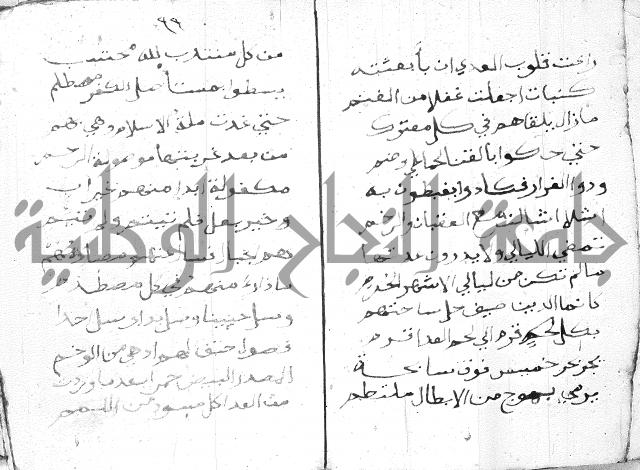 راعت قلوب العدى ان بأ بعثته
كنبات اجفلت غفلا من الغنم
ما زال يلقاهم في كل معترك
حتي حكوا بالقنا لحما علي وضم
ودوا الفرار فكادوا يغبطون به
اشلاء شالت مع العقبان والرخم
تمضي الليالي ولا يدرون عدتها
ما لم تكن من ليالي الاشهر الحرم
كانما الدين ضيف حل ساحتهم
بكل قرم الي لحم العدا قرم
يجر بحر خميس فوق سابحة
يرمي بموج من الابطال ملتطم
٩٩
من كل منتدب لله محتسب
يسطوا بمستأصل الكفر مصطلم
حتي غدت ملة الاسلام وهي بهم
من بعد غربتها موصولة الرحم
مكفولة ابدا منهم بخير اب
وخير بعل فلم تيتم ولم تئم
هم الجبال فسل عنهم مصادمهم
ماذا رأي منهم في كل مصطدم
وسل حنينا وسل بدرا وسل احدا
فصول حتف لهم ادهي من الوخم
المصدر البيض حمرا بعد ما وردت
من العدا كل مسود من اللمم
جامعة النجاح الوطنية